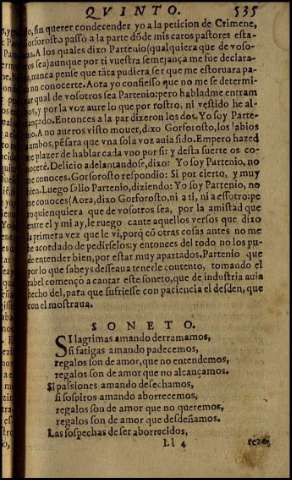 QVINTO. 535
sin querer condecender yo a la peticion de Crimene,
Gorforosto passo a la parte dõde mis caros pastores esta-
A los quales dixo Partenio (qualquiera que de voso-
sea) aunque por ti vuestra semejança me fue declara-
nunca pense que tãta pudiera ser que me estoruara pa-
conocerte. Aora yo confiesso que no me se determi-
qual de vosotros sea Partenio: pero habladme entram
y por la voz aure lo que por rostro, ni vestido he al-
Entonces a la par dizeron los dos. Yo soy Parte
A no aueros visto mouer, dixo Gorforosto, los labios
ambos, pẽsara que vna sola voz auia sido. Empero hazed
plazer de hablar cada vno por si: y desta suerte os co-
Delicio adelantandose, dixo: Yo soy Partenio, no
conoces. Gorforosto respondio: Si por cierto, y muy
Luego solio Partenio, diziendo: Yo soy Partenio, no
me conoces? Aora, dixo Gorforosto, ni a ti, ni a essotro: pe
quienquiera que de vosotros sea, por la amistad que
entre el y mi ay, le ruego cante aquellos versos que dixo
primera vez que le vi, porq̃ cõ otras cosas antes no me
acordado de pedirselos: y entonces del todo no los pu-
de entender bien, por estar muy apartados. Partenio que
por lo que sabeys desseaua tenerle contento, tomando el
rabel començò a cantar este soneto, que de industria auia
hecho del, para que sufriesse con paciencia el desden, que
con el mostraua.
SONETO.
SI lagrimas amando derramamos,
si fatigas amando padecemos,
regalos son de amor, que no entendemos,
regalos son de amor que no alcançamos.
Si passiones amando desechamos,
si sospiros amando aborrecemos,
regalos son de amor que no queremos,
regalos son de amor que desdeñamos.
Las sospechas de ser aborrecidos,
Ll 4